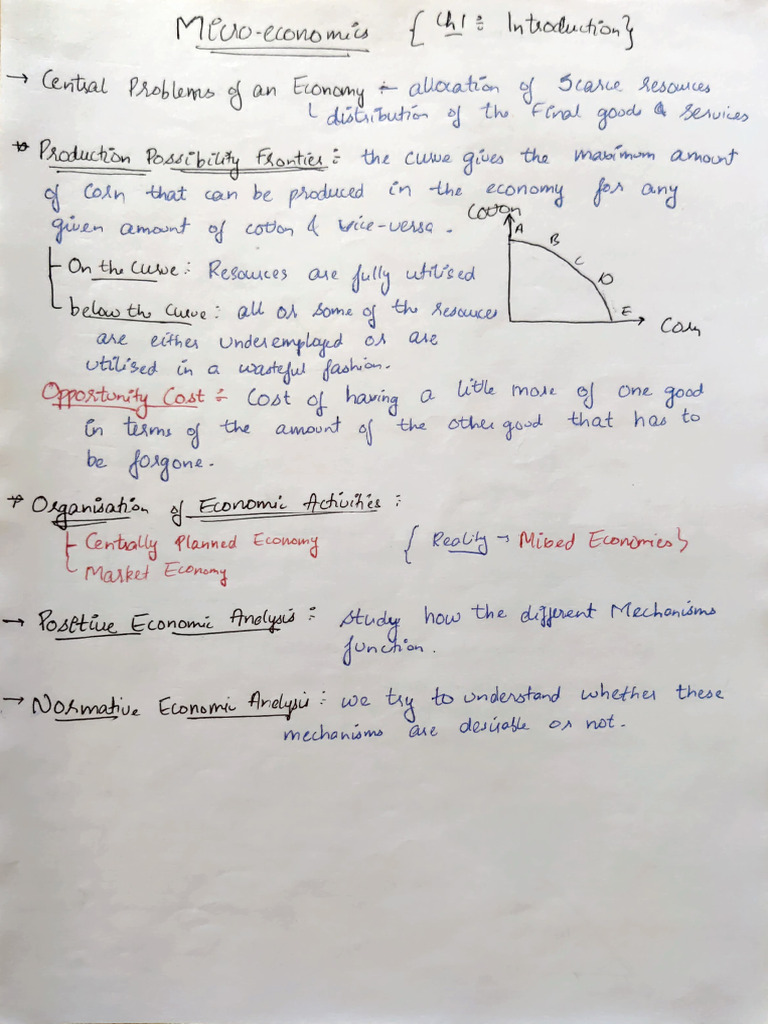 Micro-economics { Ch1 : Introduction }
→ Central Problems of an Economy :- allocation of Scarce resources
distribution of the Final goods & services
→ Production Possibility Frontier :- the curve gives the maximum amount
of Corn that can be produced in the economy for any
given amount of cotton & vice-versa.
Cotton
A
B
C
D
E
Corn
On the Curve : Resources are fully utilised
below the Curve : all or some of the resources
are either underemployed or are
utilised in a wasteful fashion.
Opportunity Cost :- Cost of having a little more of one good
in terms of the amount of the other good that has to
be forgone.
→ Organisation of Economic Activities :
Centrally Planned Economy { Reality → Mixed Economies }
Market Economy
→ Positive Economic Analysis :- Study how the different Mechanisms
function.
→ Normative Economic Analysis : we try to understand whether these
mechanisms are desirable or not.